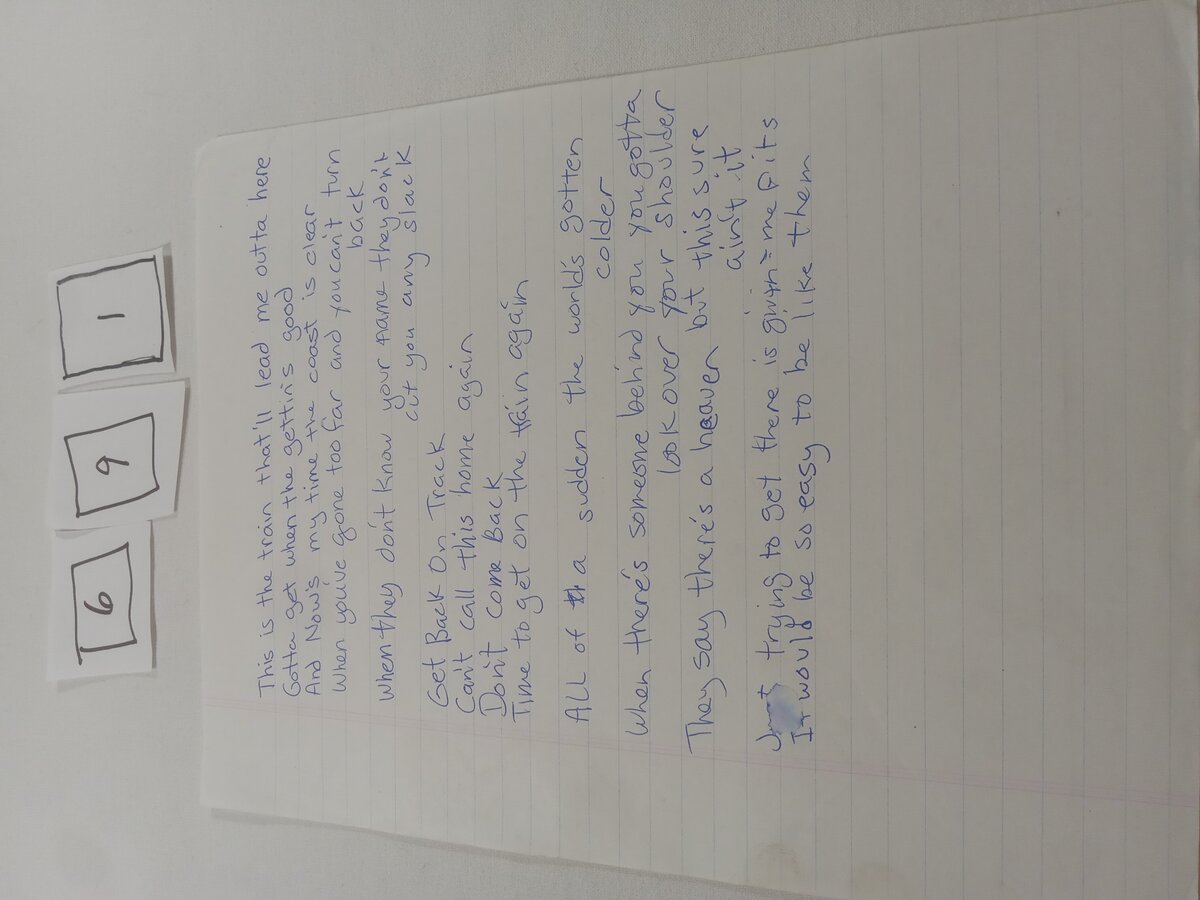 6 9 1
This is the train that'll lead me outta here
Gotta get when the gettin's good
And Now's my time the coast is clear
When you've gone too far and you can't turn
back
when they don't know your name they don't
cut you any slack
Get Back On Track
Can't call this home again
Don't Come Back
Time to get on the train again
ALL of a sudden the world's gotten
colder
when there's someone behind you you gotta
look over your shoulder
They say there's a heaven but this sure
ain't it
Just trying to get there is givin' me fits
It would be so easy to be like them